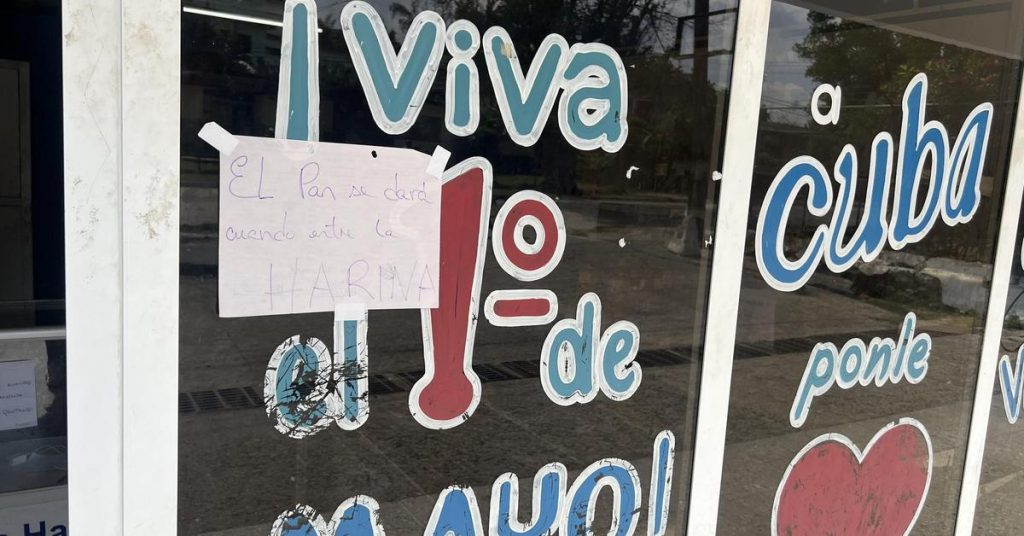 ¡Viva
EL Pan se dará
cuando entre la
HARINA
al 1º de
MAYO!
a
Cuba
ponle
Ha